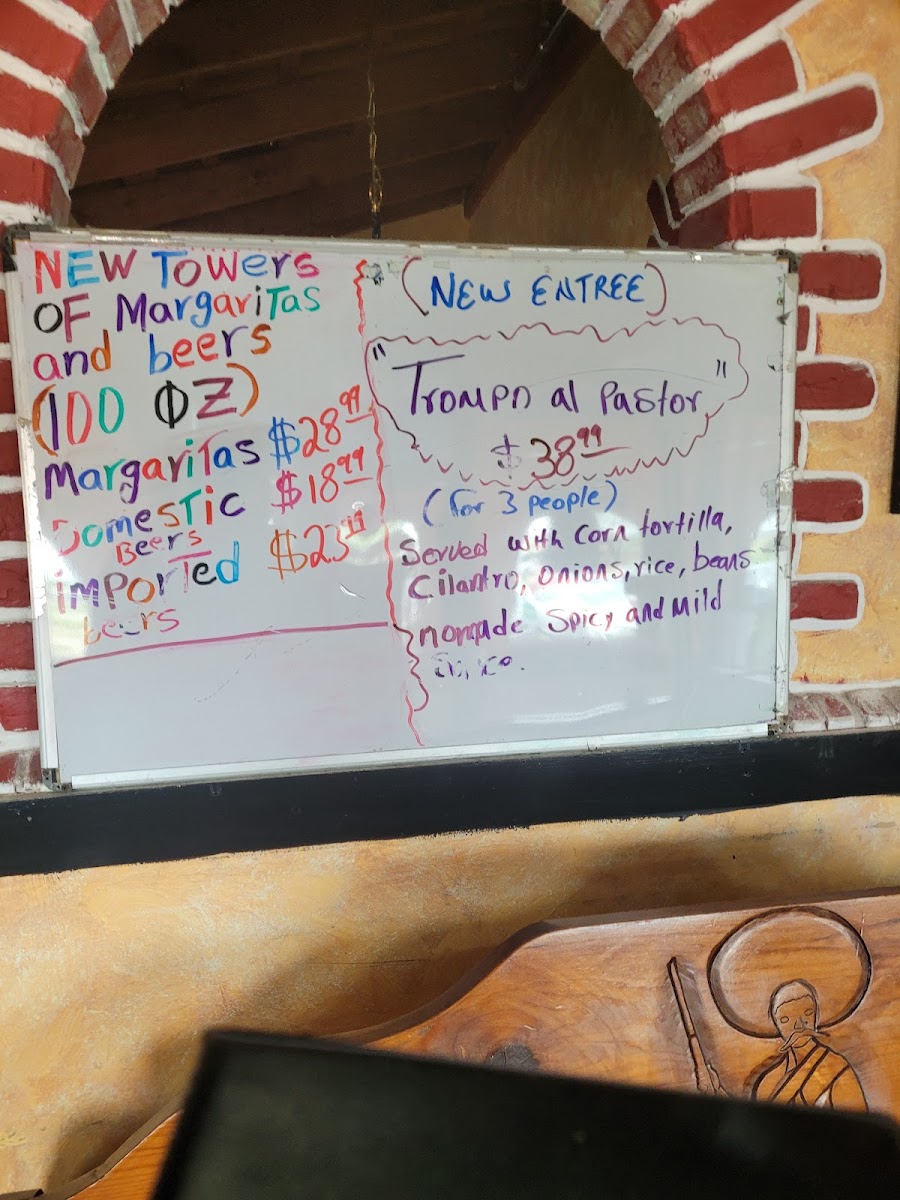 NEW Towers
OF MargariTas
and beers
(100 OZ)
MargariTas $28.99
DomesTic $18.99
Beers
imporTed $23.99
beers
(NEW ENTREE)
"Trompo al Pastor"
$38.99
(for 3 people)
Served with corn tortilla,
Cilantro, onions, rice, beans
nomade Spicy and Mild